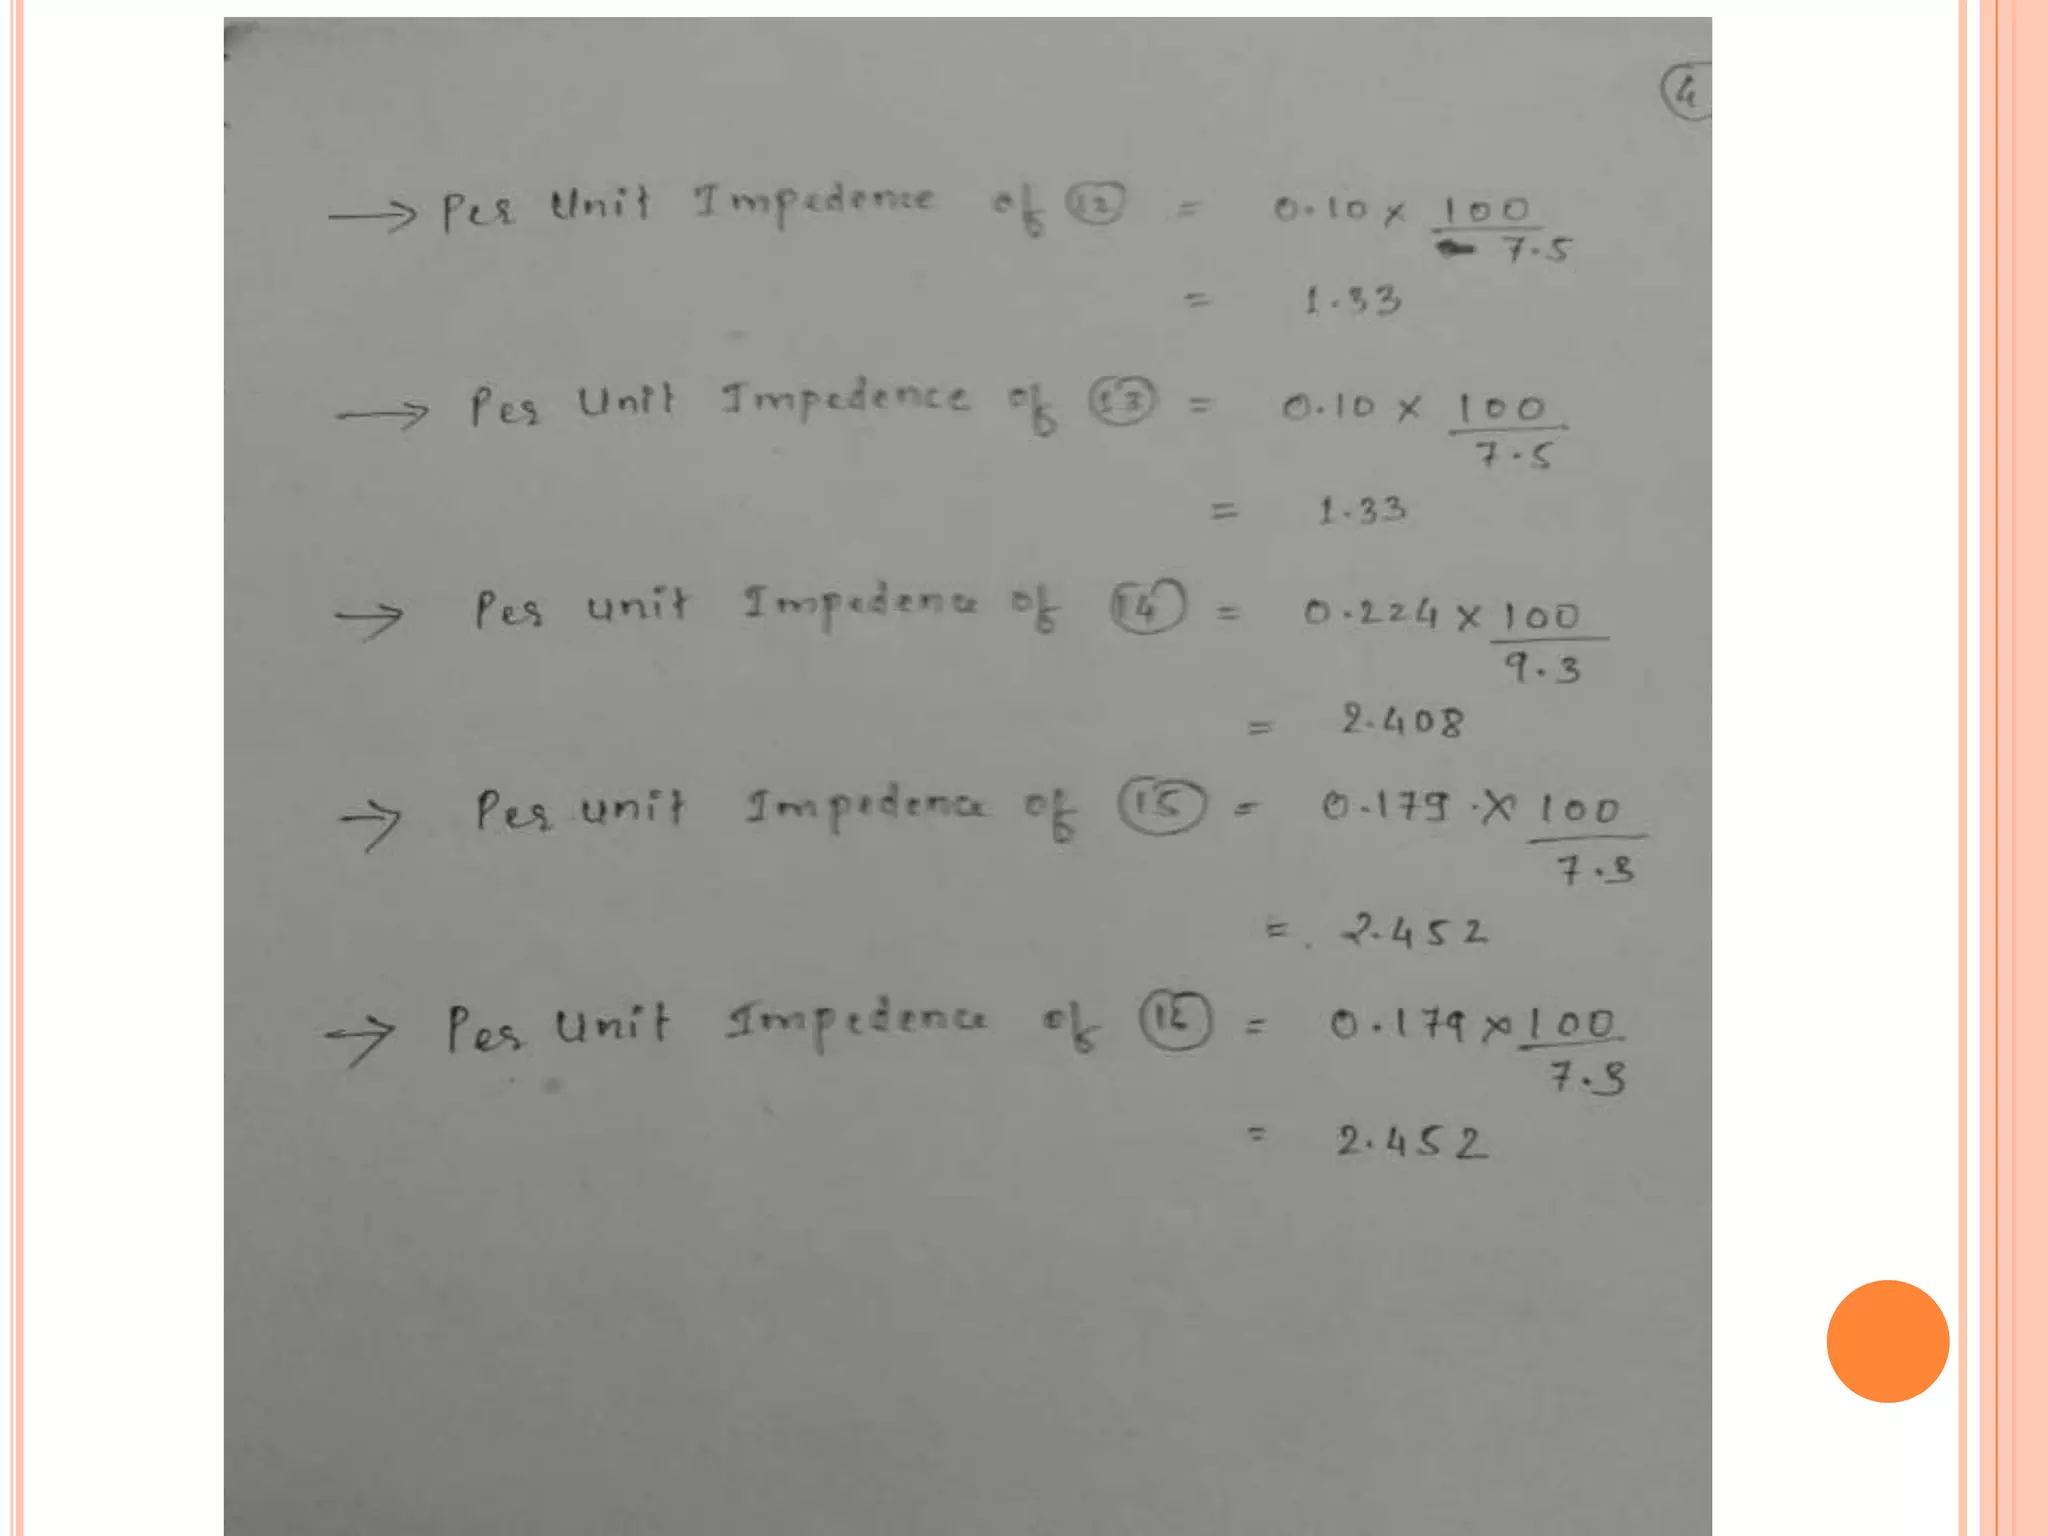 4
→ Per Unit Impedence of 12 = 0.10 × 100
7.5
= 1.33
→ Per Unit Impedence of 13 = 0.10 × 100
7.5
= 1.33
→ Per unit Impedence of 14 = 0.224 × 100
9.3
= 2.408
→ Per unit Impedence of 15 = 0.179 × 100
7.3
= 2.452
→ Per Unit Impedence of 16 = 0.179 × 100
7.3
= 2.452